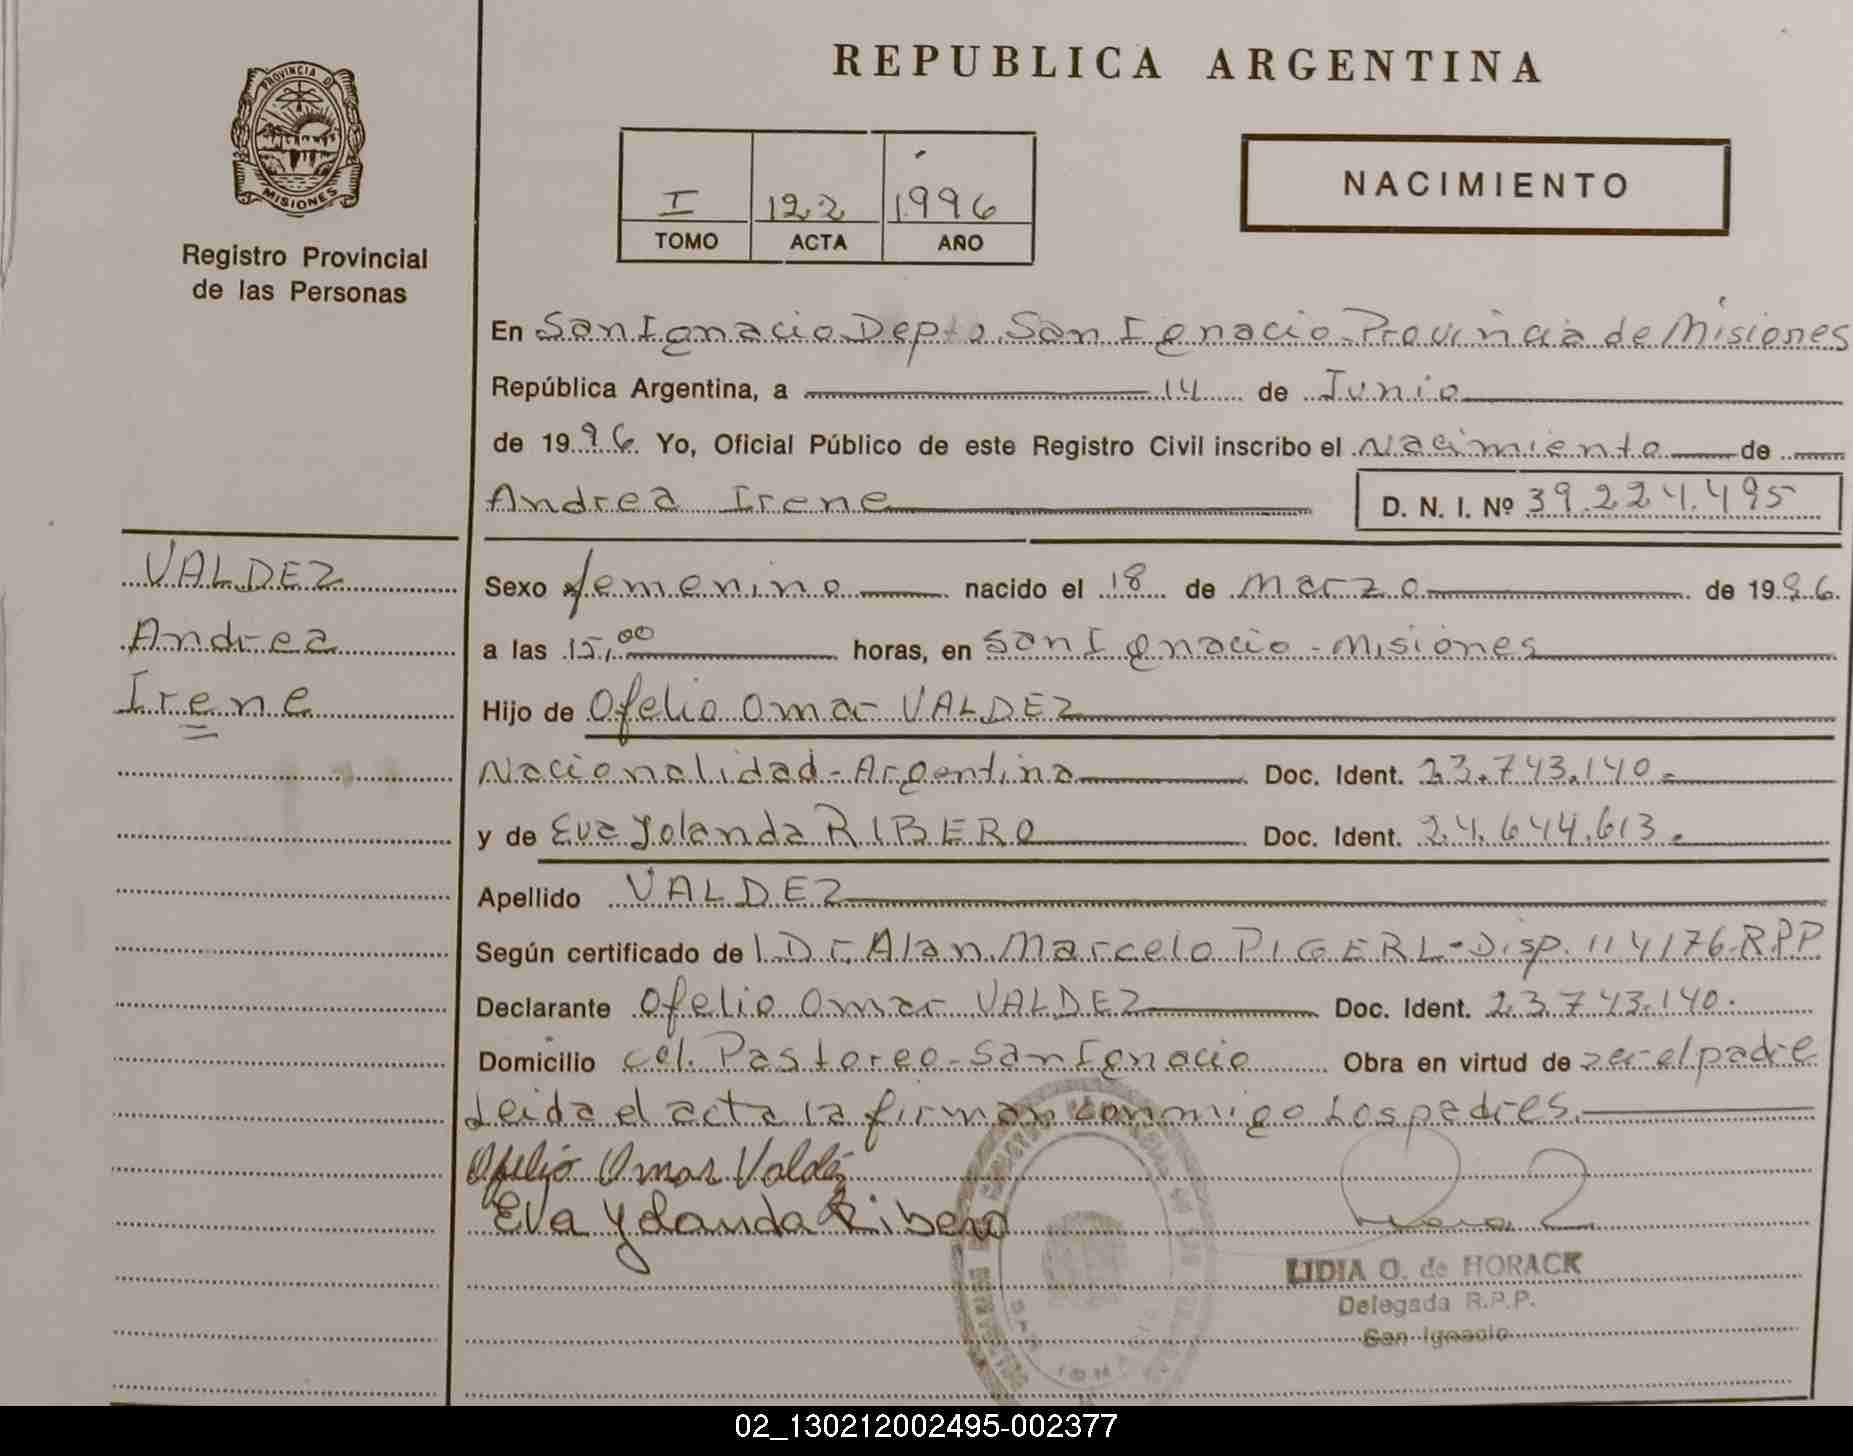 REPUBLICA ARGENTINA
PROVINCIA DE
MISIONES
Registro Provincial
de las Personas
I 122 1996
TOMO ACTA AÑO
NACIMIENTO
En San Ignacio Depto. San Ignacio-Provincia de Misiones
República Argentina, a 14 de Junio
de 1996 Yo, Oficial Público de este Registro Civil inscribo el Nacimiento de
Andrea Irene D. N. I. Nº 39.224.495
VALDEZ
Andrea
Irene
Sexo femenino nacido el 18 de Marzo de 1996.
a las 15,00 horas, en San Ignacio - Misiones
Hijo de Ofelio Omar VALDEZ
Nacionalidad-Argentina Doc. Ident. 23.743.140.
y de Eva Yolanda RIBERO Doc. Ident. 24.644.613.
Apellido VALDEZ
Según certificado de l Dr. Alan Marcelo PIGERL-Disp. 114/76-RPP
Declarante Ofelio Omar VALDEZ Doc. Ident. 23.743.140.
Domicilio Col. Pastoreo-San Ignacio Obra en virtud de ser el padre
Leida el acta la firman conmigo Los padres.
Ofelio Omar Valdez
Eva Yolanda Ribero
LIDIA O. de HORACK
Delegada R.P.P.
San Ignacio
02_130212002495-002377